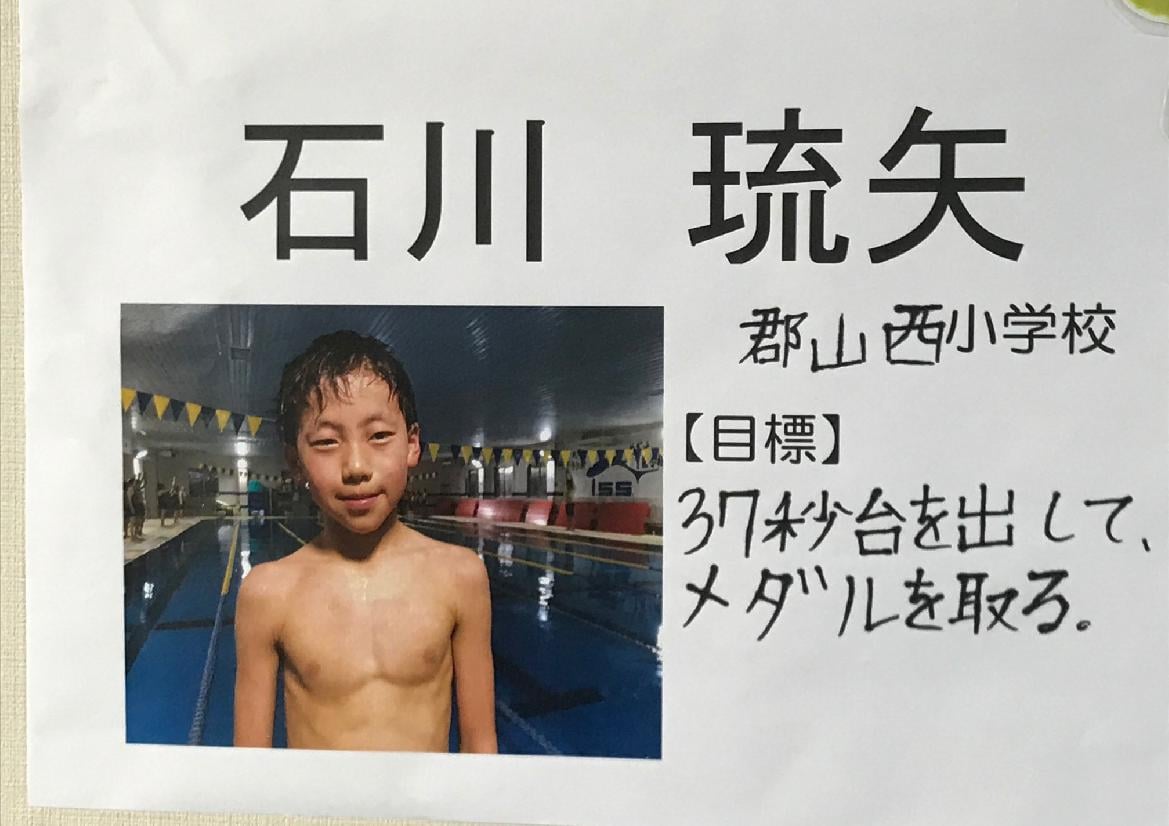 石川 琉矢
郡山西小学校
【目標】
37秒台を出して、
メダルを取る。
ISS